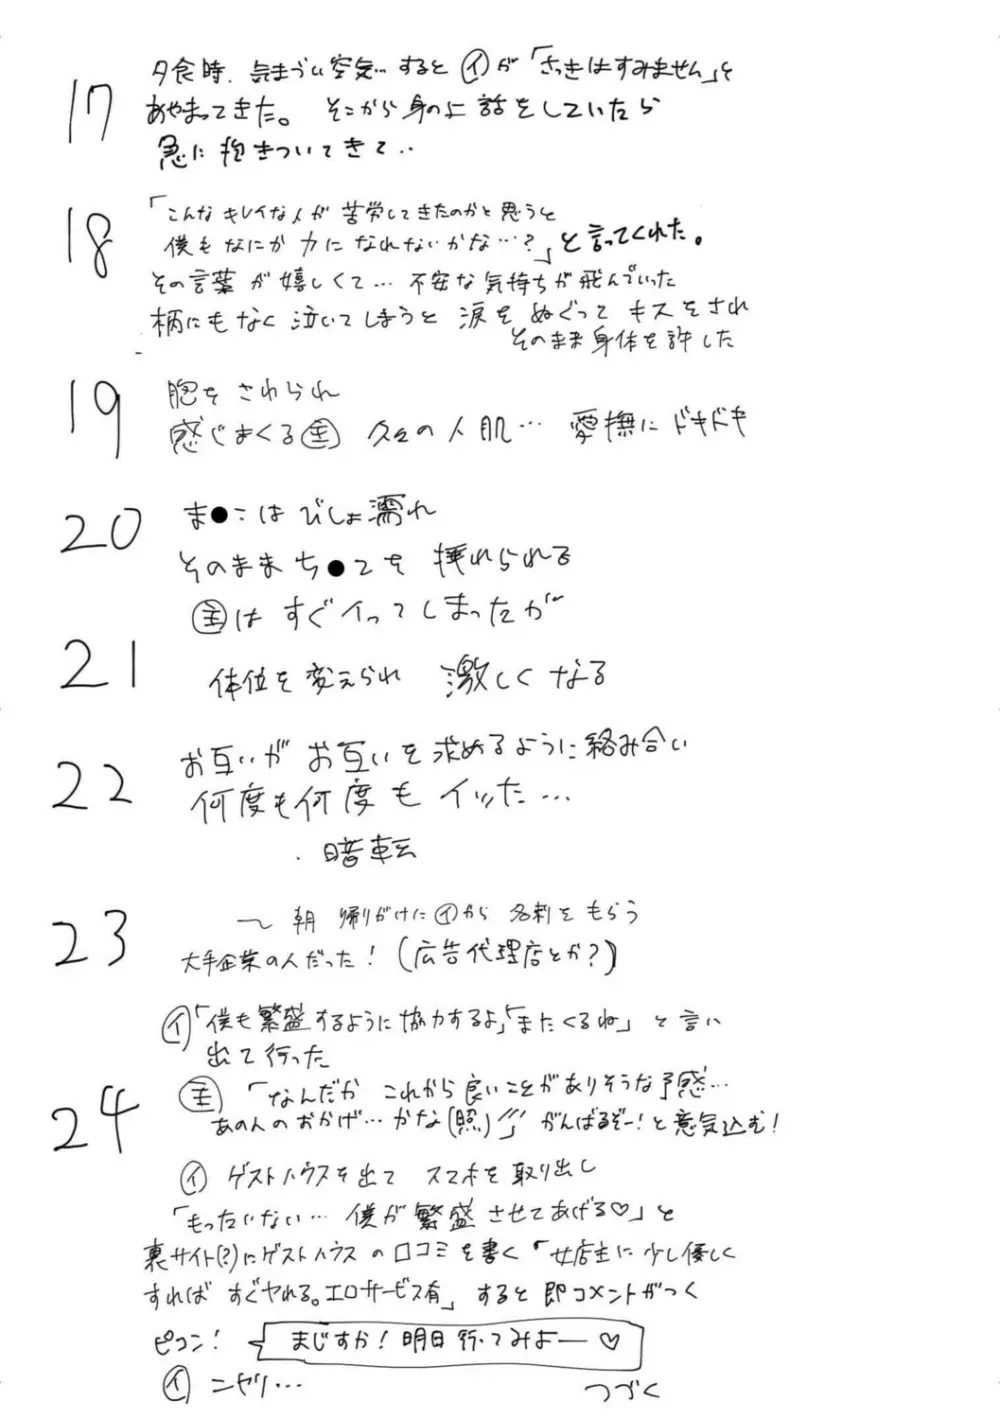 17
夕食時、気まづい空気…すると㋑が「さっきはすみません」と
あやまってきた。そこから身の上話をしていたら
急に抱きついてきて‥
18
「こんなキレイな人が苦労してきたのかと思うと
僕もなにか力になれないかな…?」と言ってくれた。
その言葉が嬉しくて…不安な気持ちが飛んでいった
柄にもなく泣いてしまうと涙をぬぐってキスをされ
そのまま身体を許した
19
胸をさわられ
感じまくる㊟久々の人肌…愛撫にドキドキ
20
ま●こはびしょ濡れ
そのままち●こを挿れられる
主はすぐイってしまったが
21
体位を変えられ 激しくなる
22
お互いがお互いを求めるように絡み合い
何度も何度もイッた…
暗転
23
〜朝 帰りがけに㋑から名刺をもらう
大手企業の人だった!(広告代理店とか?)
㋑「僕も繁盛するように協力するよ」「またくるね」と言い
出て行った
24
主「なんだかこれから良いことがありそうな予感…
あの人のおかげ…かな(照)」がんばるぞー!と意気込む!
㋑ゲストハウスを出てスマホを取り出し
「もったいない…僕が繁盛させてあげる♡」と
裏サイト(?)にゲストハウスの口コミを書く「女店主に少し優しく
すればすぐヤれる。エロサービス有」すると即コメントがつく
ピコン! まじすか!明日行ってみよー♡
㋑ニヤリ…
つづく